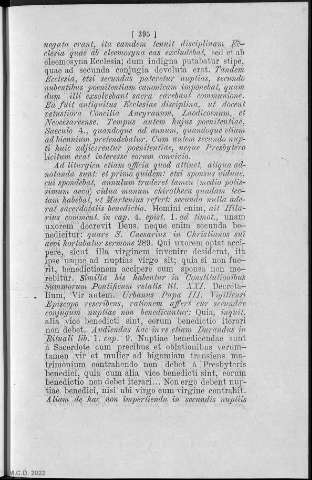 [ 395 ]
negata erant, ita eamdem tenuit disciplinam Ec-
clesia quae ab eleemosyna eas excludebat, sed et ab
eleemosyna Ecclesia; dum indigna putabatur stipe,
quae ad secunda conjugia devoluta erat. Tandem
Ecclesia, etsi secundas pateretur nuptias, secundo
nubentibus poenitentiam canonicam imponebat, quam
dum illi exsolvebant sacra carebant communione.
Ea fuit antiquitus Ecclesiae disciplina, ut docent
vetustiora Concilia Ancyranum, Laodicenum, et
Neocesariense. Tempus autem hujus poenitentiae,
Saeculo 4., quandoque ad annum, quandoque etiam
ad biennium protendebatur. Cum autem secundo nup-
ti huic adjicerentur poenitentiae, neque Presbytero
licitum erat interesse eorum convivio.
Ad liturgica etiam officia quod attinet, aliqua ad-
notanda sunt: et primo quidem: etsi sponsus viduae,
cui spondebat, annulum traderet tamen
aeco) cidua manus chirotheca quadam tec-
tam habebat, et Martenius refert: secundo nulla ade-
rat sacerdotalis benedictio. Homini enim, ait Hila-
rius comment. in cap. 4. epist. 1. ad timot., unam
uxorem decrevit Deus, neque enim secunda be-
nedicitur: quare S. Caesarius in Christianum sui
aevi hortabatur sermone 289. Qui uxorem optat acci-
pere, sicut illa virginem invenire desiderat, ita
ipse usque ad nuptias virgo sit; quia si non fue-
rit, benedictionem accipere cum sponsa non me-
rebitur. Similia his habentur in Constitutionibus
Summorum Pontificum relatis tit. XXI. Decreta-
lium, Vir autem. Urbanus Papa III. Vigiliensi
Episcopo rescribens, rationem affert cur secundae
conjugum nuptiae non benedicantur: Quia, inquit,
alia vice benedicti sint, eorum benedictio iterari
non debet. Audiendus hac in re etiam Durandus in
Rituali lib. 1. cap. 9. Nuptiae benedicendae sunt
a Sacerdote cum precibus et oblationibus verum-
tamen vir et mulier ad bigamiam transiens ma-
trimonium contrahendo non debet a Presbyteris
benedici, quia cum alia vice benedicti sint, eorum
benedictio non debet iterari... Non ergo debent nup-
tiae benedici, nisi ubi virgo cum virgine contrahit.
Aliam de hac non impertienda in secundis nuptiis
M.C.D. 2022